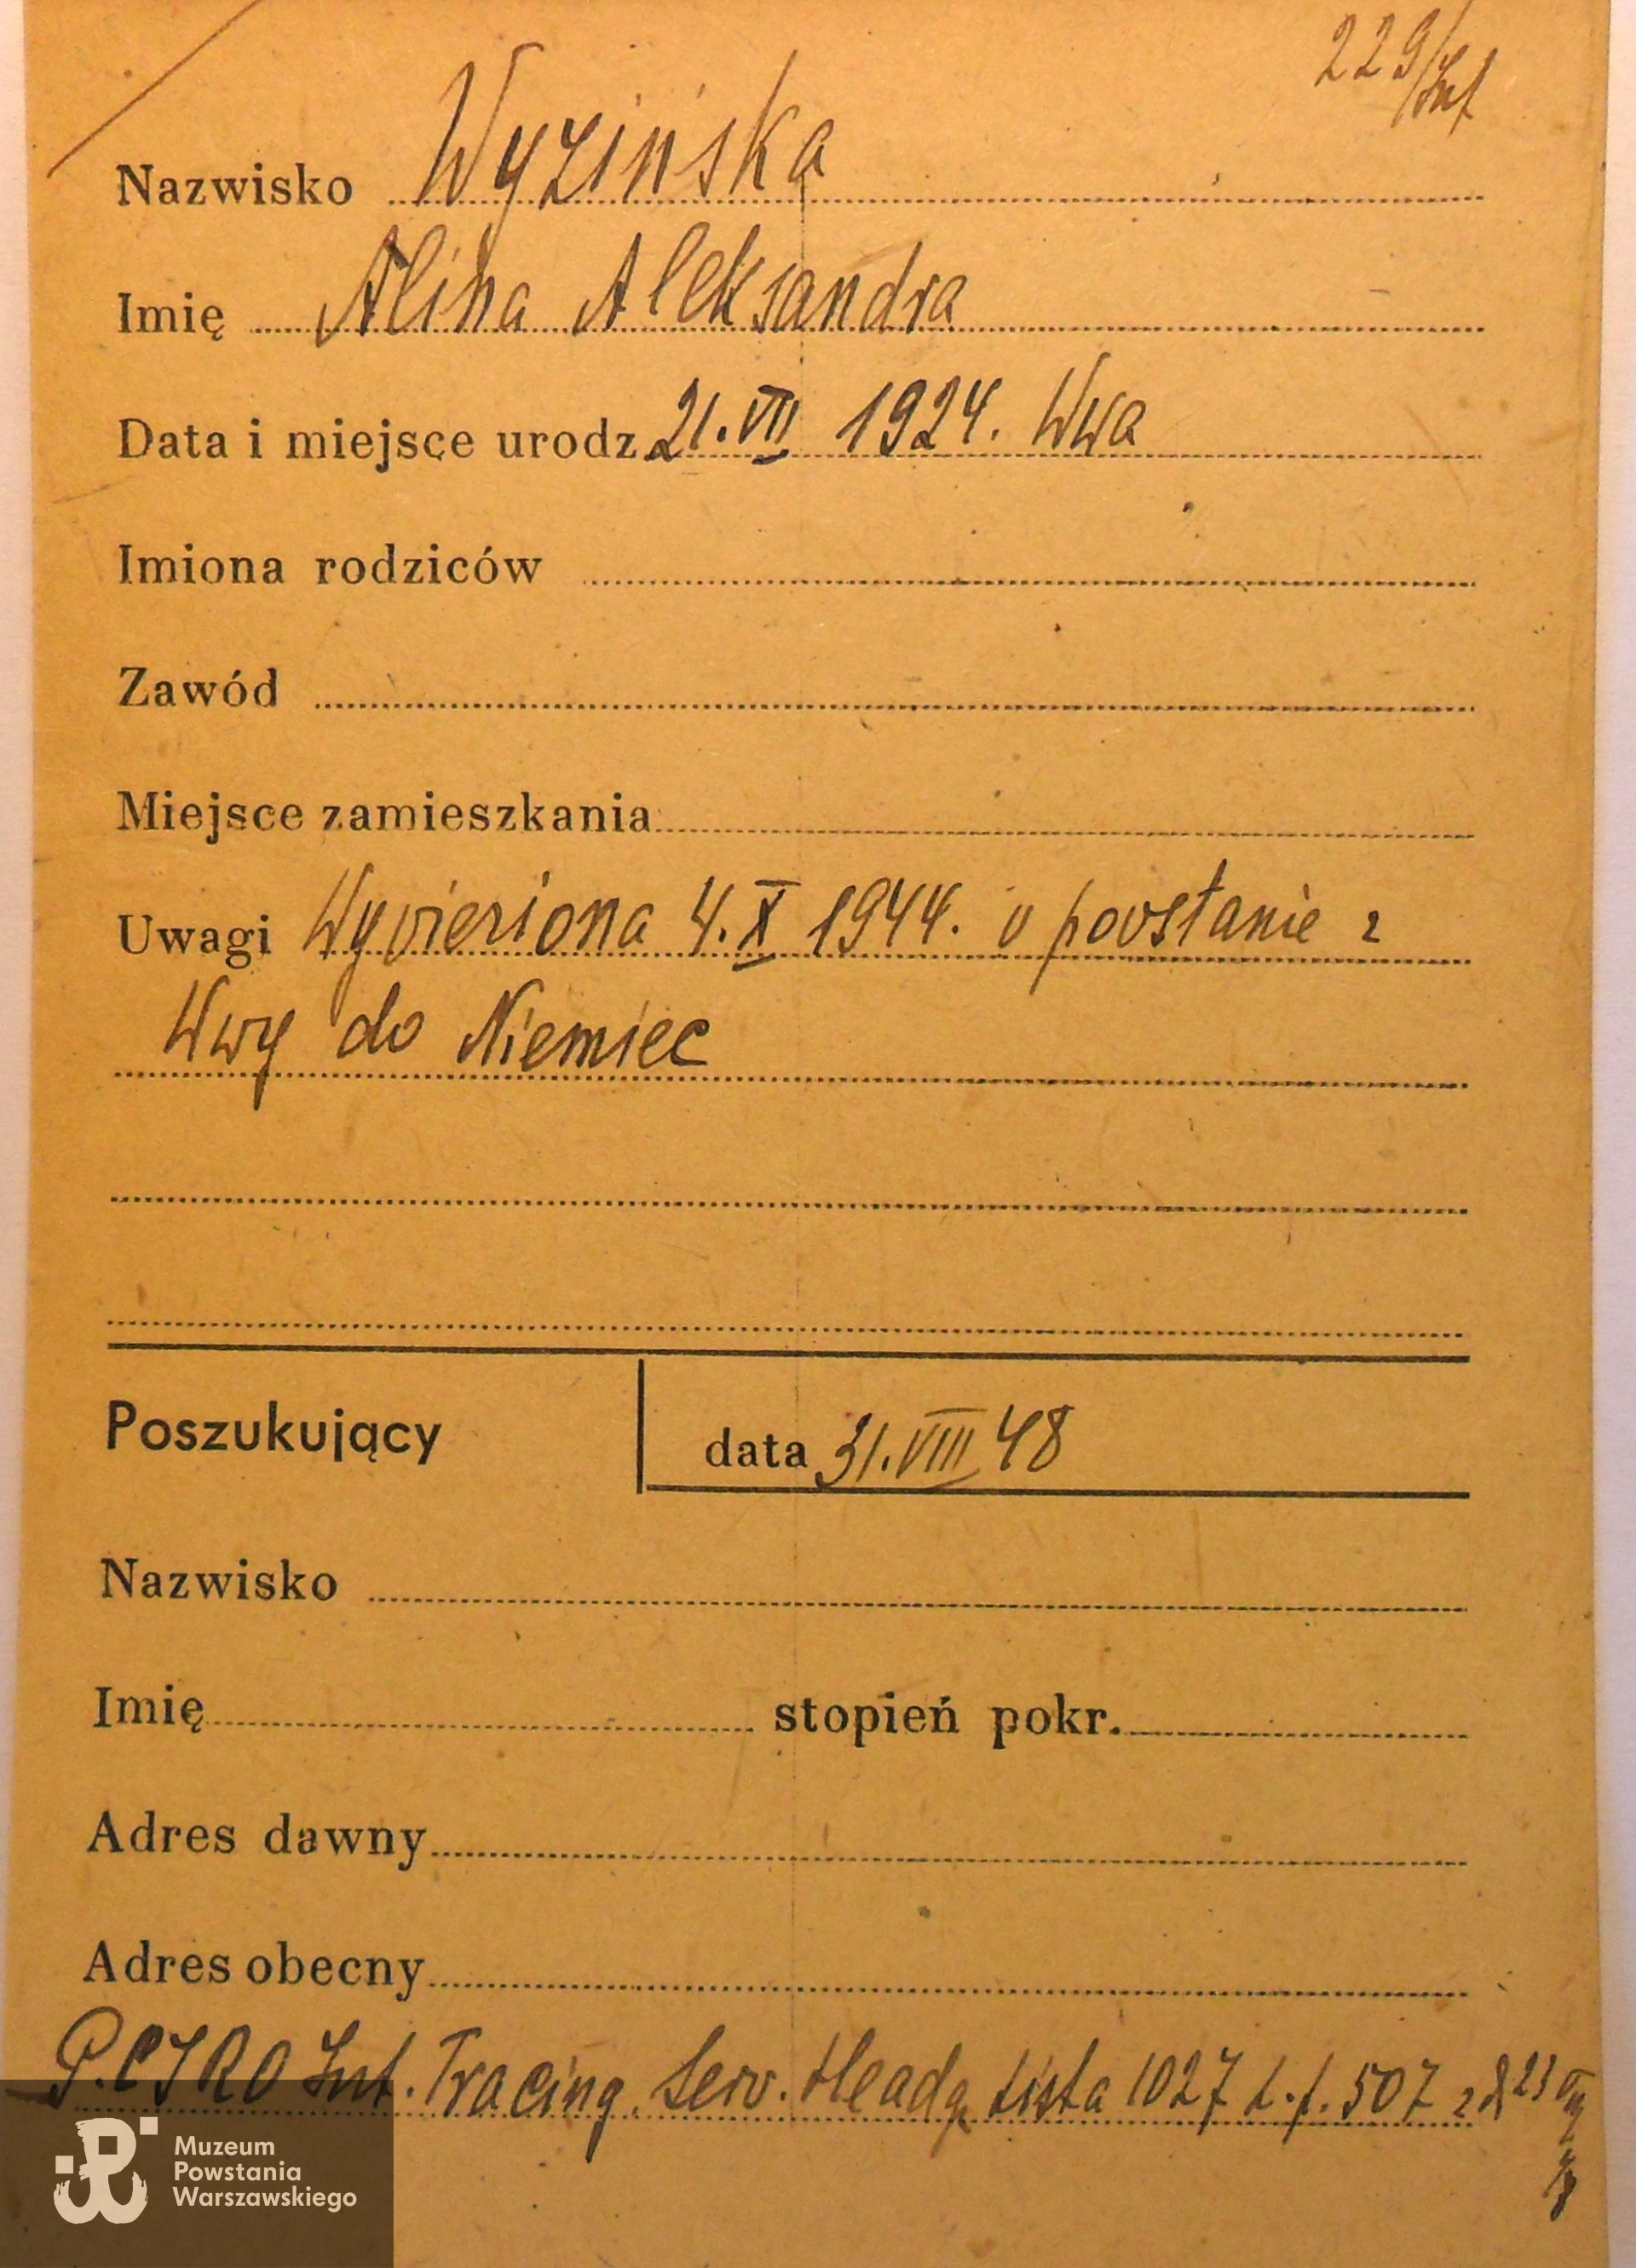 229/Inf
Nazwisko Wyzińska
Imię Alina Aleksandra
Data i miejsce urodz. 21.VII 1924. Wwa
Imiona rodziców
Zawód
Miejsce zamieszkania
Uwagi Wywieziona 4.X 1944. w powstanie z
Wwy do Niemiec
Poszukujący
data 31.VIII 48
Nazwisko
Imię stopień pokr.
Adres dawny
Adres obecny
P.C IRO Int. Tracing. Serv. Headq. Lista 1027 L.f. 507 z d 23
Muzeum
Powstania
Warszawskiego